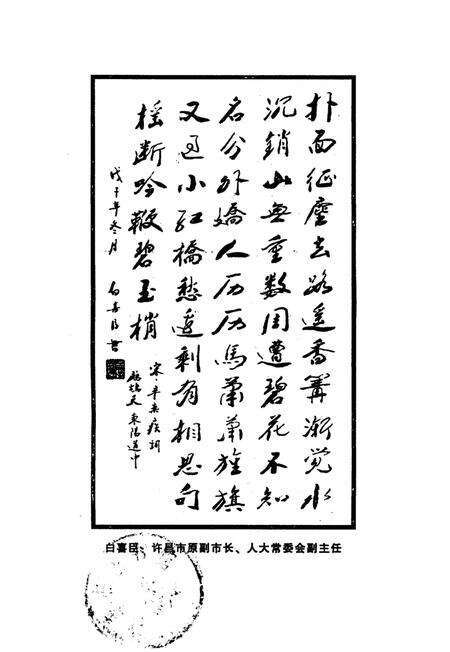 扑面征塵去路遥香篝渐觉水
沉銷山無重数周遭碧花不知
名分外嬌人历历馬蕭蕭旌旗
又过小红橋愁边剩有相思句
摇断吟鞭碧玉梢
宋·辛弃疾词
鹧鸪天 東阳道中
戊子年冬月 白喜臣書
白喜臣：许昌市原副市长、人大常委会副主任